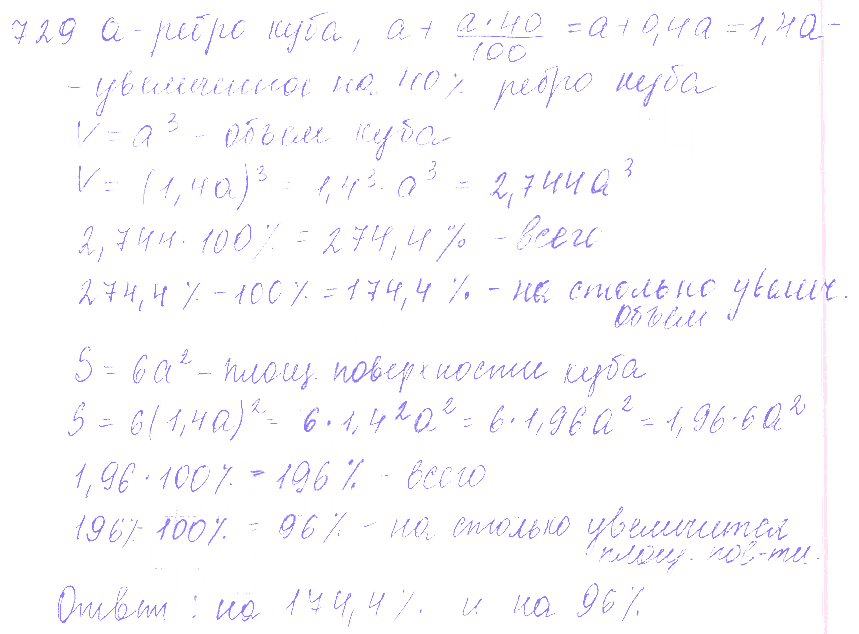 729 a - ребро куба, a + a·40/100 = a + 0,4a = 1,4a -
- увеличенное на 40% ребро куба
V = a³ - объем куба
V = (1,4a)³ = 1,4³ · a³ = 2,744a³
2,744 · 100% = 274,4% - всего
274,4% - 100% = 174,4% - на столько увелич.
объем
S = 6a² - площ. поверхности куба
S = 6(1,4a)² = 6 · 1,4²a² = 6 · 1,96a² = 1,96 · 6a²
1,96 · 100% = 196% - всего
196% - 100% = 96% - на столько увеличится
площ. пов-ти.
Ответ: на 174,4% и на 96%